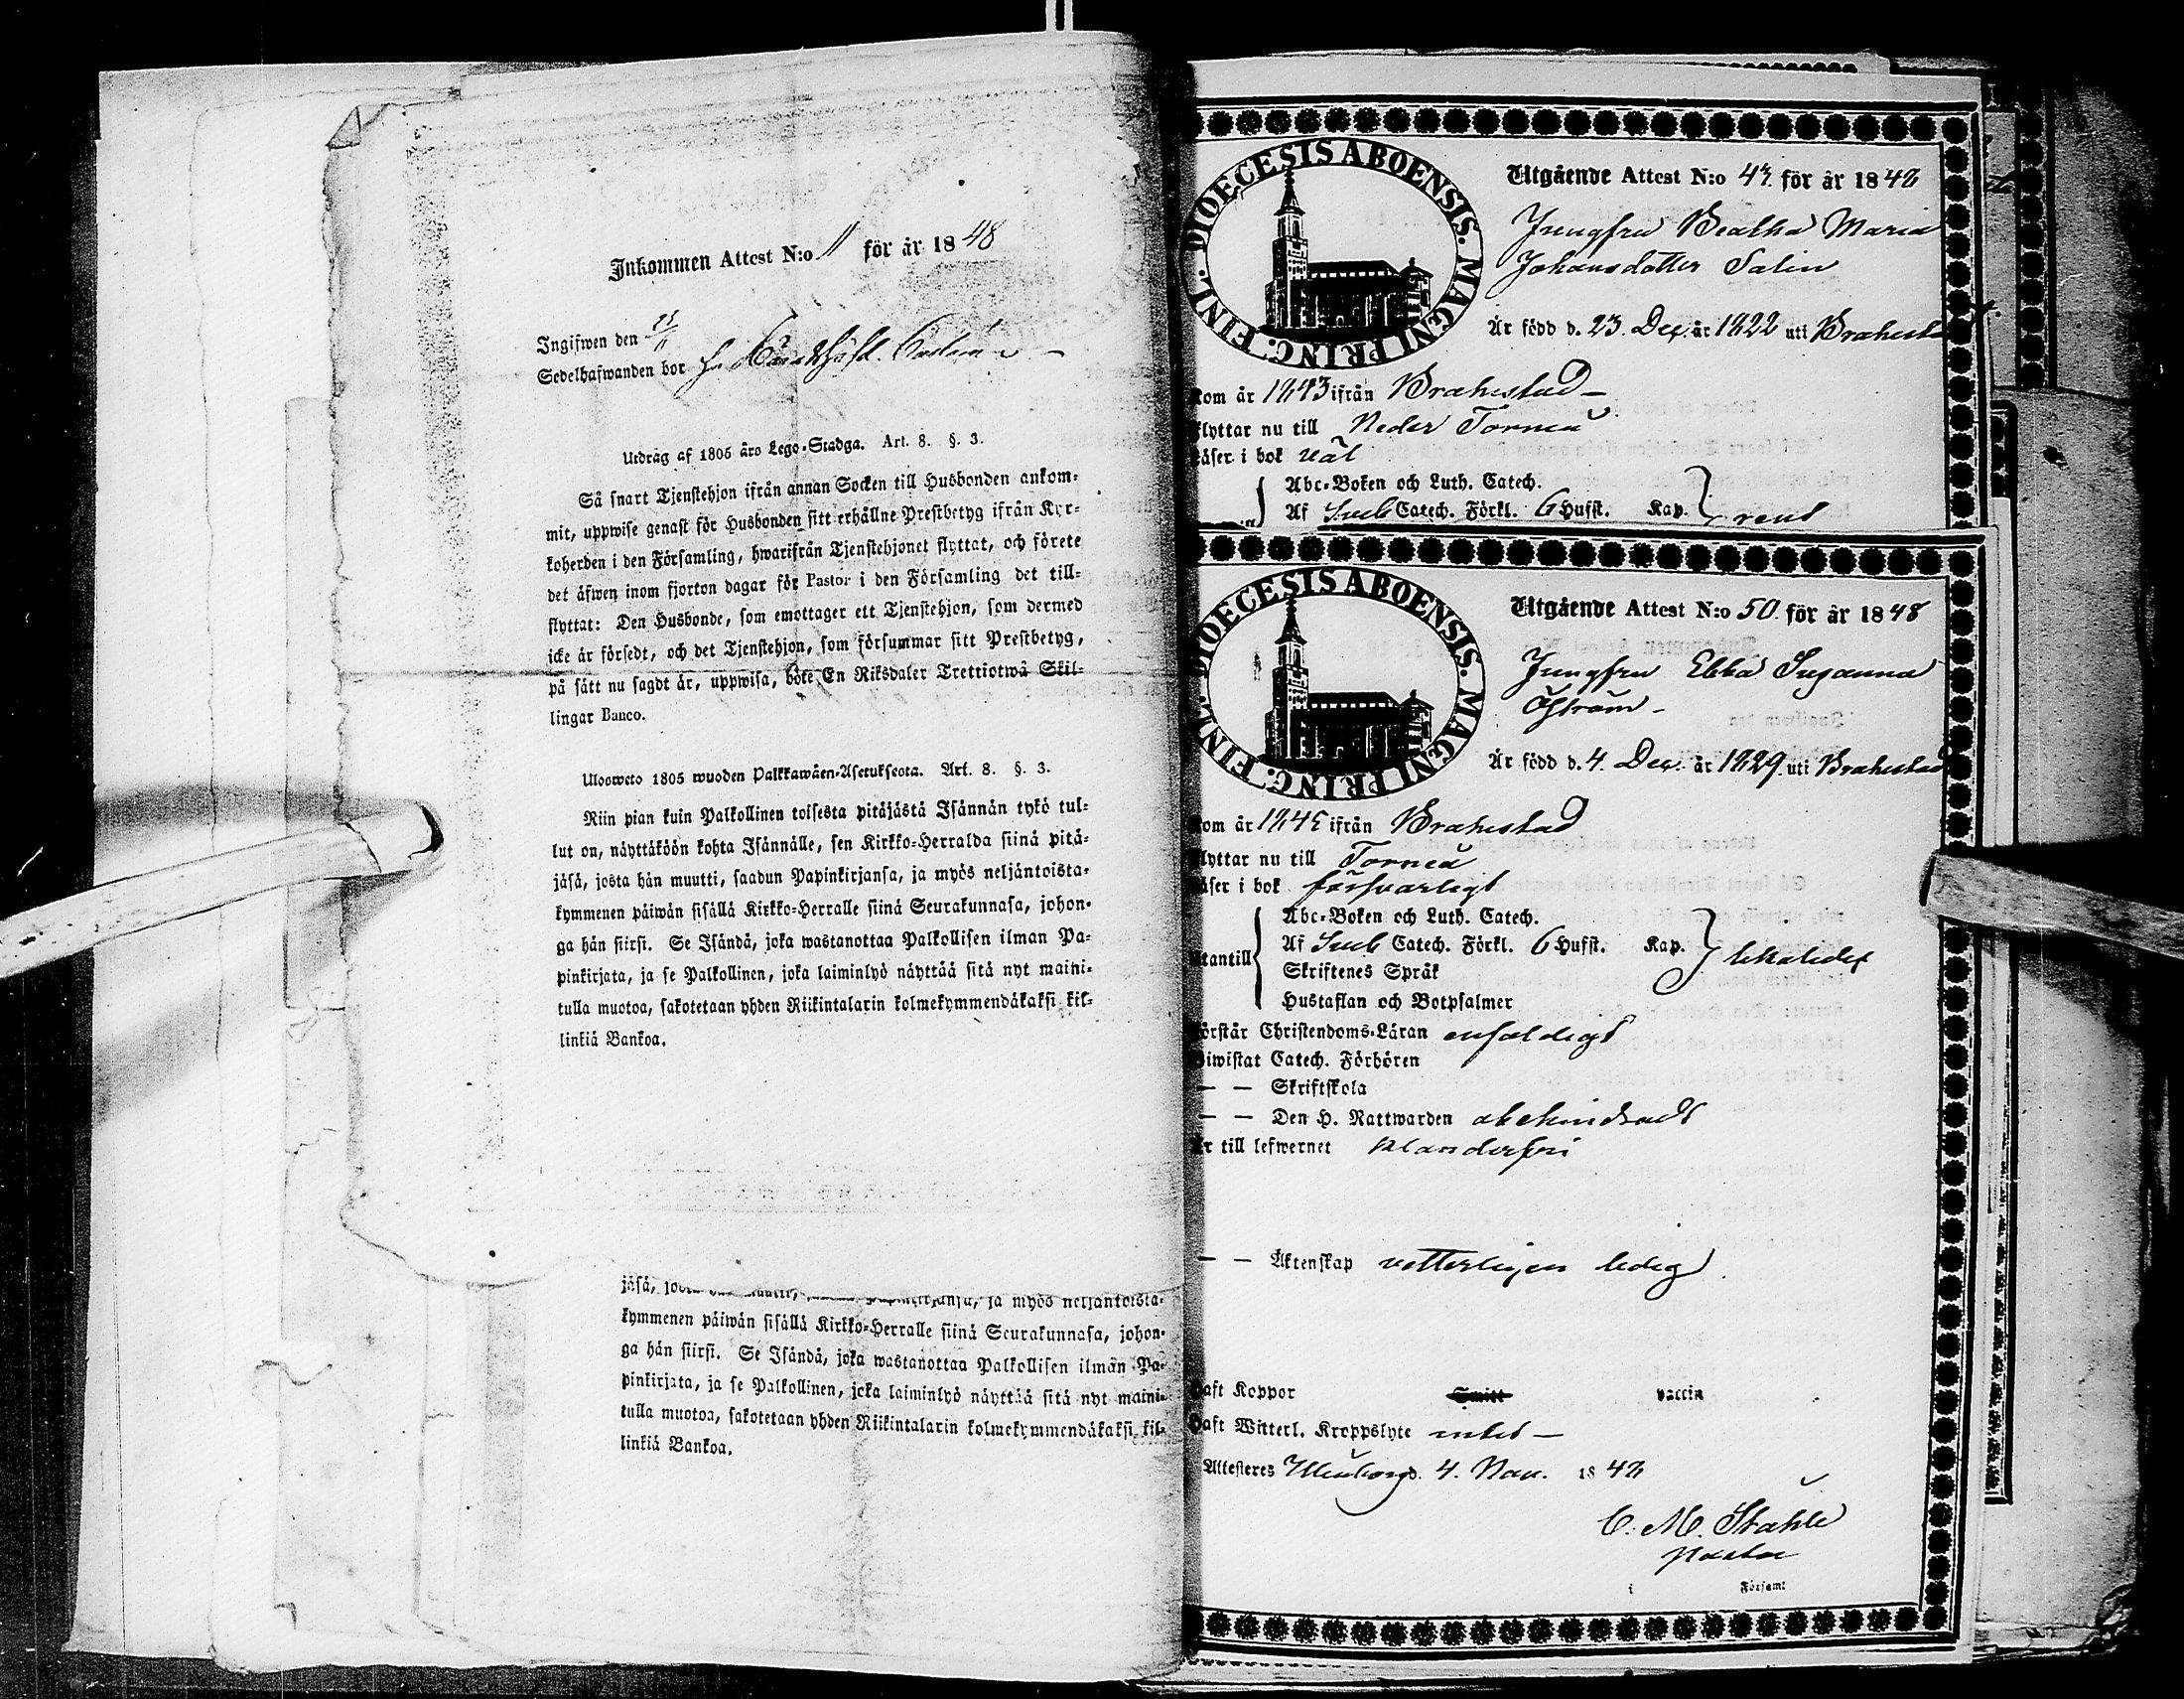 Inkommen Attest N:o 11 för år 1848
Ingifwen den 23/11
Sedelhafwanden bor
Utdrag af 1805 års Lego-Stadga. Art. 8. §. 3.
Så snart Tjenstehjon ifrån annan Socken till Husbonden ankom-
mit, uppwise genast för Husbonden sitt erhållne Prestbetyg ifrån Kyr-
koherden i den Församling, hwarifrån Tjenstehjonet flyttat, och förete
det äfwen inom fjorton dagar för Pastor i den Församling det till-
flyttat: Den Husbonde, som emottager ett Tjenstehjon, som dermed
icke är försedt, och det Tjenstehjon, som försummar sitt Prestbetyg,
på sätt nu sagdt är, uppwisa, böte En Riksdaler Trettiotwå Skil-
lingar Banco.
Ulosweto 1805 wuoden Palkkawäen-Asetuksesta. Art. 8. §. 3.
Niin pian kuin Palkollinen toisesta pitäjästä Isännän tykö tul-
lut on, näyttäköön kohta Isännälle, sen Kirkko-Herralda siinä pitä-
jäsä, josta hän muutti, saadun Papinkirjansa, ja myös neljäntoista-
kymmenen päiwän sisällä Kirkko-Herralle siinä Seurakunnasa, johon-
ga hän siirsi. Se Isändä, joka wastanottaa Palkollisen ilman Pa-
pinkirjata, ja se Palkollinen, joka laiminlyö näyttää sitä nyt maini-
tulla muotoa, sakotetaan yhden Riikintalarin kolmekymmendäkaksi kil-
linkiä Bankoa.
jäsä,
ja myös neljäntoista-
kymmenen päiwän sisällä Kirkko-Herralle siinä Seurakunnasa, johon-
ga hän siirsi. Se Isändä, joka wastanottaa Palkollisen ilman Pa-
pinkirjata, ja se Palkollinen, joka laiminlyö näyttää sitä nyt maini-
tulla muotoa, sakotetaan yhden Riikintalarin kolmekymmendäkaksi kil-
linkiä Bankoa.
DIOECESIS ABOENSIS. MAGNI PRINC. FINL.
Utgående Attest N:o 47. för år 1848
Jungfru Beatha Maria
Johansdotter Salin
Är född d. 23. Dec. år 1822 uti Brahesta
kom år 1843 ifrån Brahestad
flyttar nu till Neder Torneå
läser i bok väl
Abc-Boken och Luth. Catech.
Af Sveb Catech. Förkl. 6 Hufst. Kap. rent
DIOECESIS ABOENSIS. MAGNI PRINC. FINL.
Utgående Attest N:o 50. för år 1848
Jungfru Ebba Susanna
Öström
Är född d. 4. Dec. år 1829. uti Brahestad
kom år 1845 ifrån Brahestad
flyttar nu till Torneå
läser i bok försvarligt
Abc-Boken och Luth. Catech.
Utantill Af Sveb Catech. Förkl. 6 Hufst. Kap. likaledes
Skriftenes Språk
Hustaflan och Botpsalmer
Förstår Christendoms-Läran enfaldigt
Biwistat Catech. Förhören
— — Skriftskola
— — Den H. Nattwarden obehindradt
Är till lefwernet klanderfri
— — Äktenskap vetterligen ledig
Haft Koppor vaccin
Haft Witterl. Kroppslyte intet
Attesteras Uleåborg d. 4. Nov. 1848
C. M. Ståhle
Pastor
i Församl